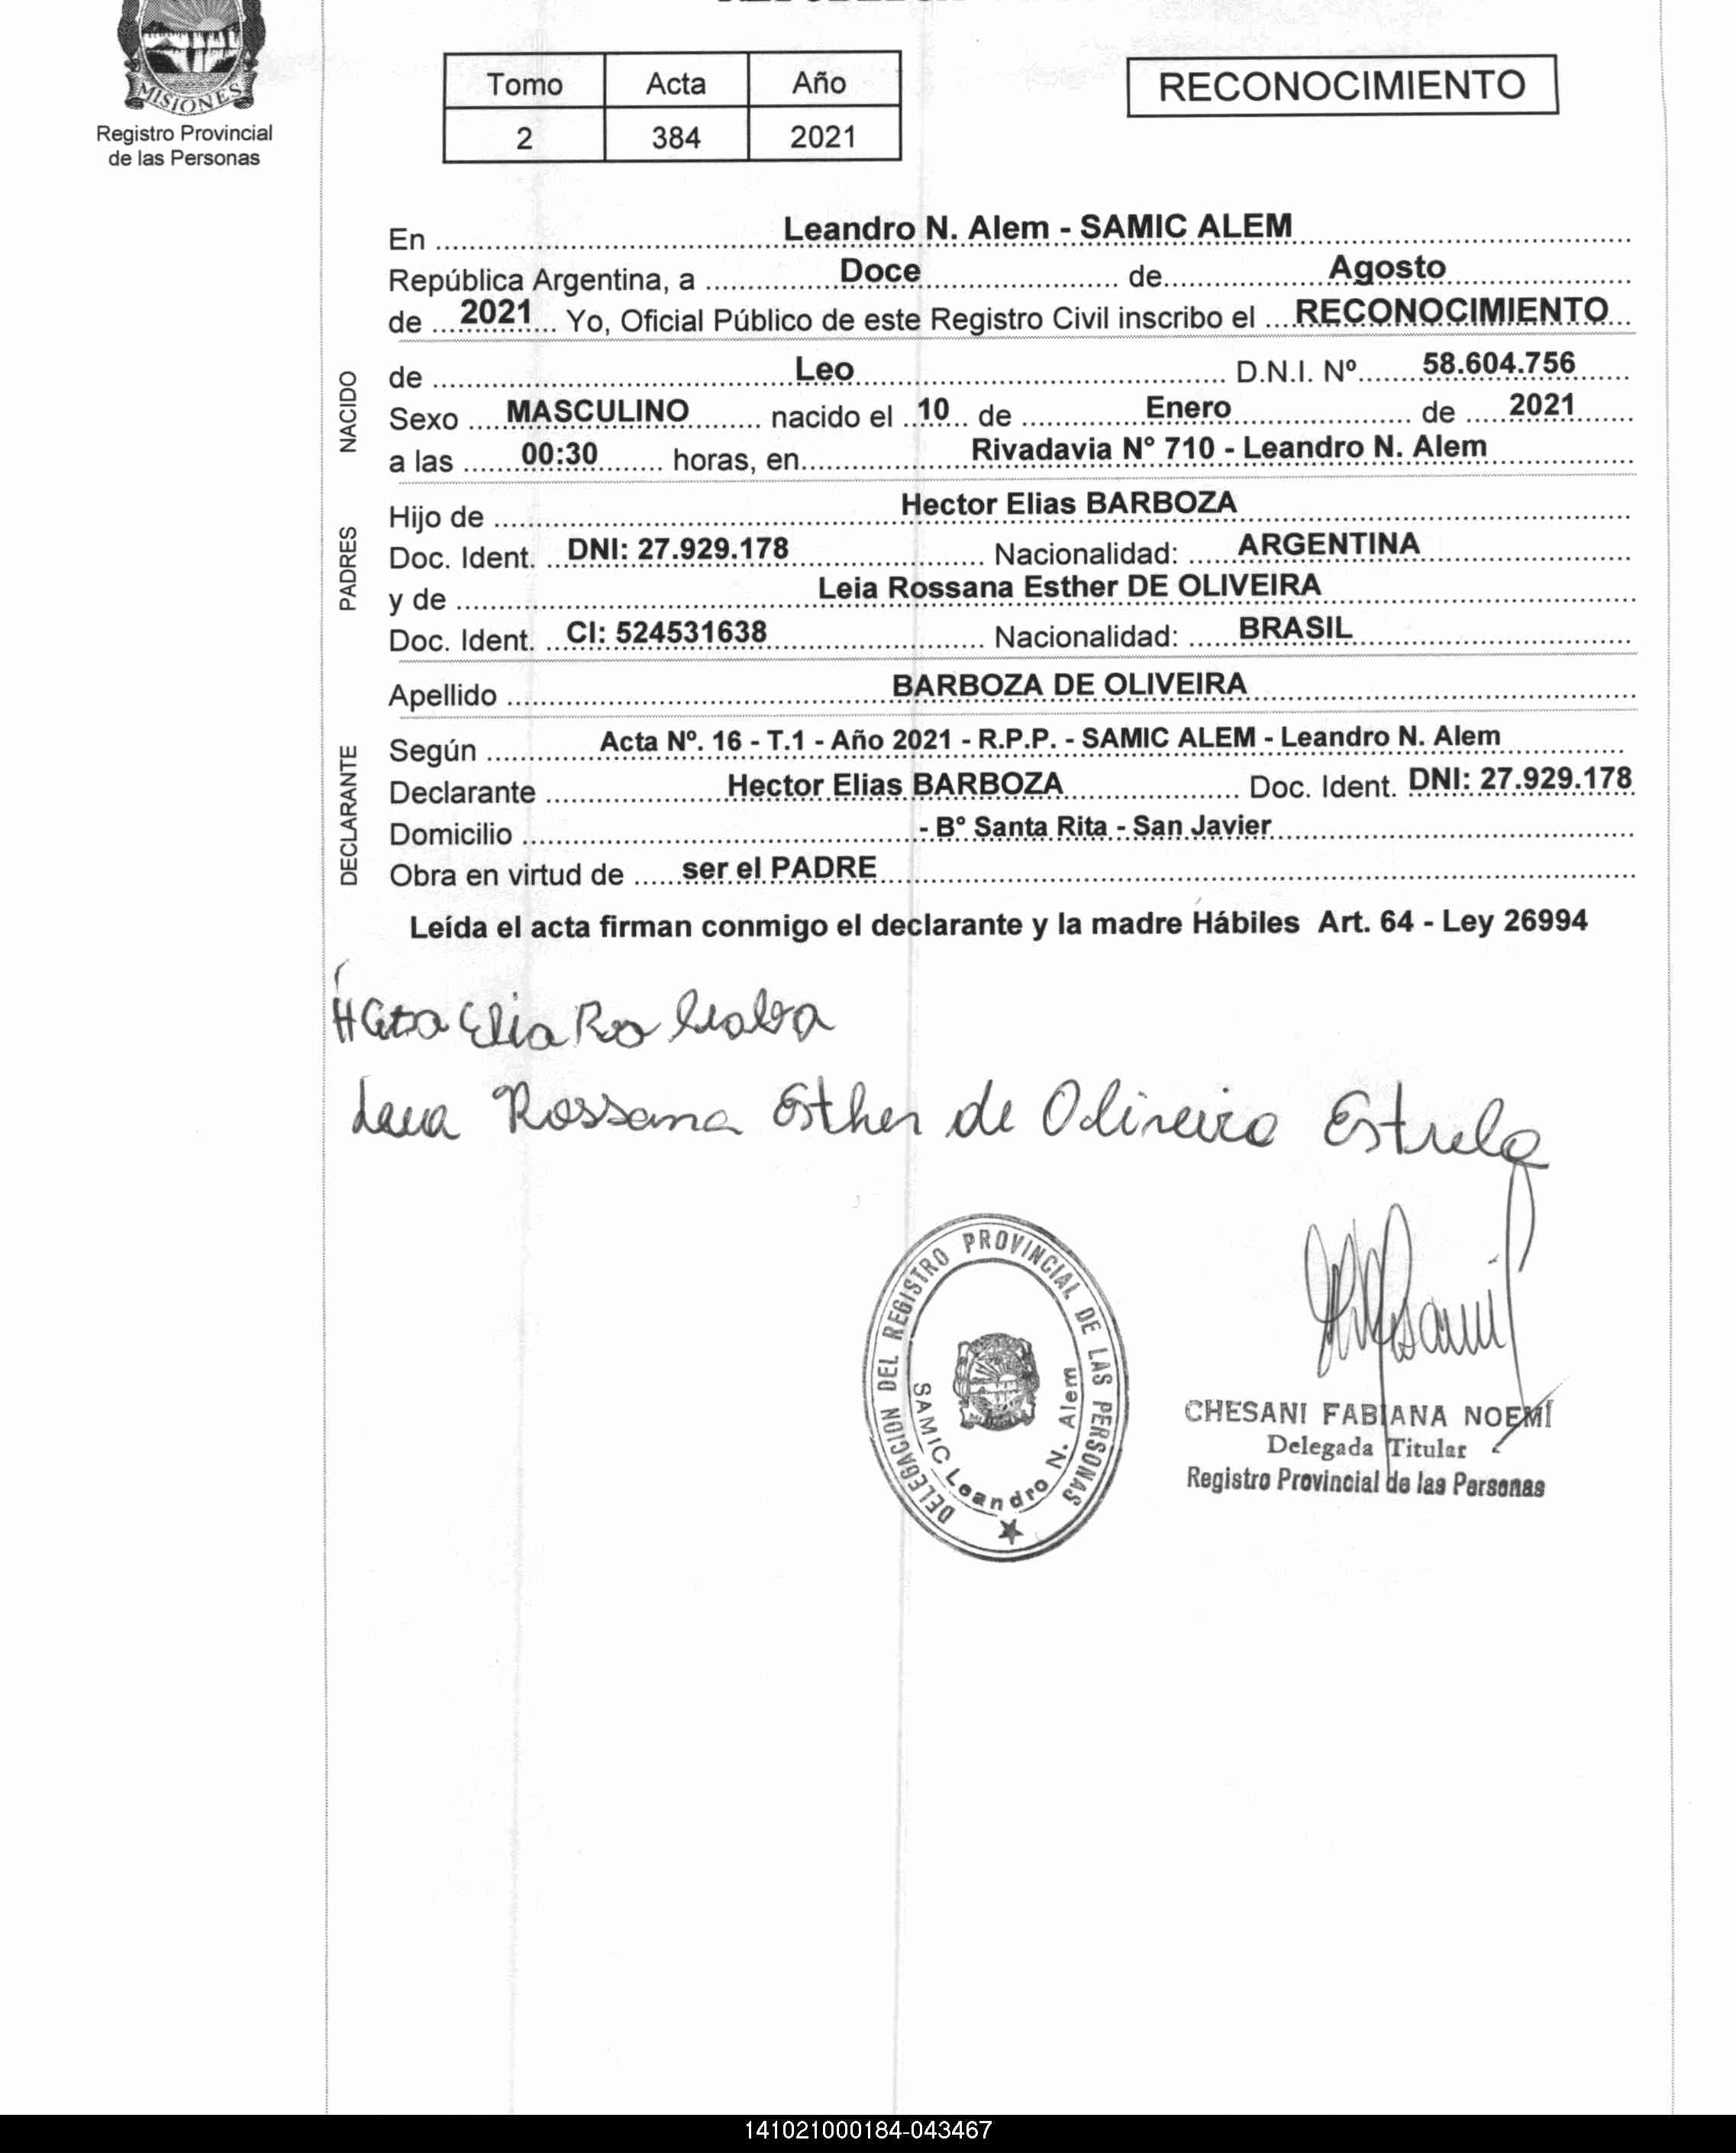 MISIONES
Registro Provincial
de las Personas
Tomo Acta Año
2 384 2021
RECONOCIMIENTO
En Leandro N. Alem - SAMIC ALEM
República Argentina, a Doce de Agosto
de 2021 Yo, Oficial Público de este Registro Civil inscribo el RECONOCIMIENTO
NACIDO
de Leo D.N.I. Nº 58.604.756
Sexo MASCULINO nacido el 10 de Enero de 2021
a las 00:30 horas, en Rivadavia N° 710 - Leandro N. Alem
PADRES
Hijo de Hector Elias BARBOZA
Doc. Ident. DNI: 27.929.178 Nacionalidad: ARGENTINA
y de Leia Rossana Esther DE OLIVEIRA
Doc. Ident. CI: 524531638 Nacionalidad: BRASIL
Apellido BARBOZA DE OLIVEIRA
DECLARANTE
Según Acta Nº. 16 - T.1 - Año 2021 - R.P.P. - SAMIC ALEM - Leandro N. Alem
Declarante Hector Elias BARBOZA Doc. Ident. DNI: 27.929.178
Domicilio - B° Santa Rita - San Javier
Obra en virtud de ser el PADRE
Leída el acta firman conmigo el declarante y la madre Hábiles Art. 64 - Ley 26994
Rossana Esther de Olineira Estrela
DELEGACION DEL REGISTRO PROVINCIAL DE LAS PERSONAS
SAMIC Leandro N. Alem
CHESANI FABIANA NOEMÍ
Delegada Titular
Registro Provincial de las Personas
141021000184-043467